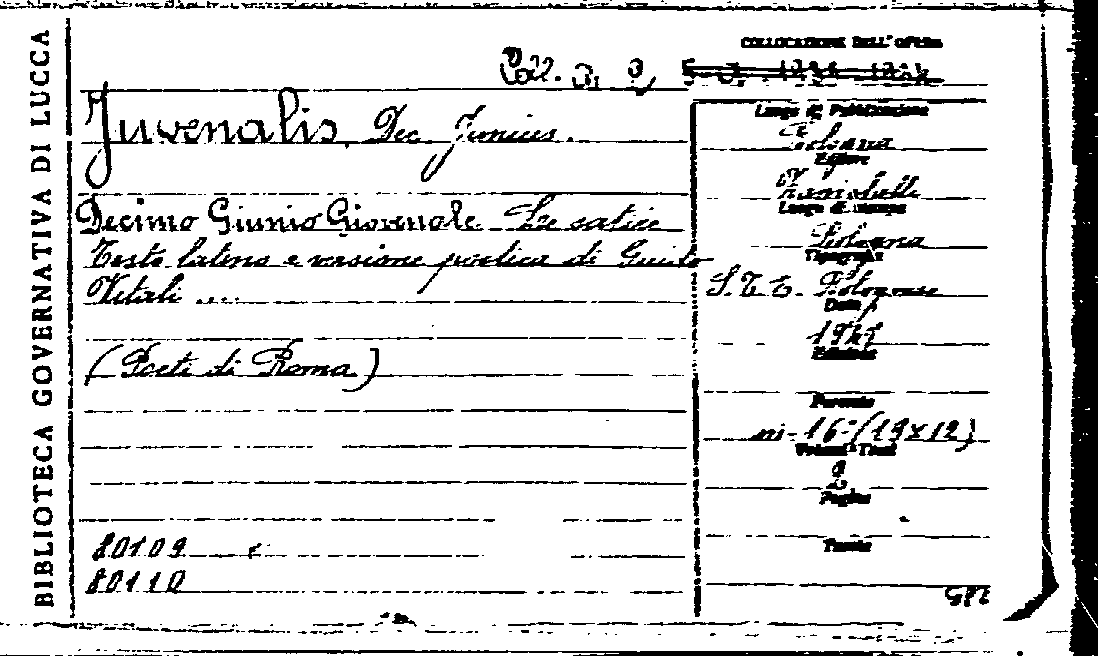 BIBLIOTECA GOVERNATIVA DI LUCCA
COLLOCAZIONE DELL'OPERA
Coll.
Juvenalis, Dec. Junius.
Decimo Giunio Giovenale Le satire
Testo latino e versione poetica di Guido
Vitali ...
(Poeti di Roma)
80109
80110
Luogo di Pubblicazione
Bologna
Editore
Zanichelli
Luogo di stampa
Bologna
Tipografia
S.T.E. Bolognese
Data
Edizione
Formato
in-16° (19x12)
Volumi-Tomi
2
Pagine
Tavole